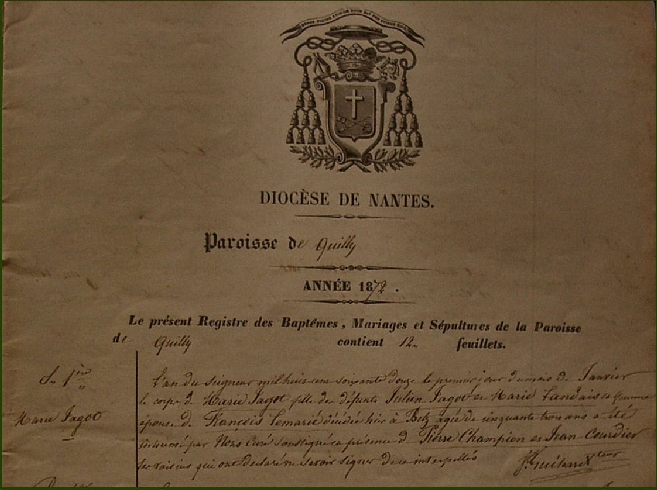 DIOCÈSE DE NANTES.
Paroisse de Quilly
ANNÉE 1872.
Le présent Registre des Baptêmes, Mariages et Sépultures de la Paroisse
de Quilly contient 12 feuillets.
S. 1ère
Marie Jagot
L'an du Seigneur mil huit cent soixante douze le premier jour du mois de Janvier
le corps de Marie Jagot fille de défunts Julien Jagot et Marie Landais
épouse de François Lemarié décédée hier à âgée de cinquante trois ans a été
inhumé par Nous Curé soussigné en présence de Pierre Champion et Jean Courdier
qui ont déclaré ne savoir signer de ce interpellés